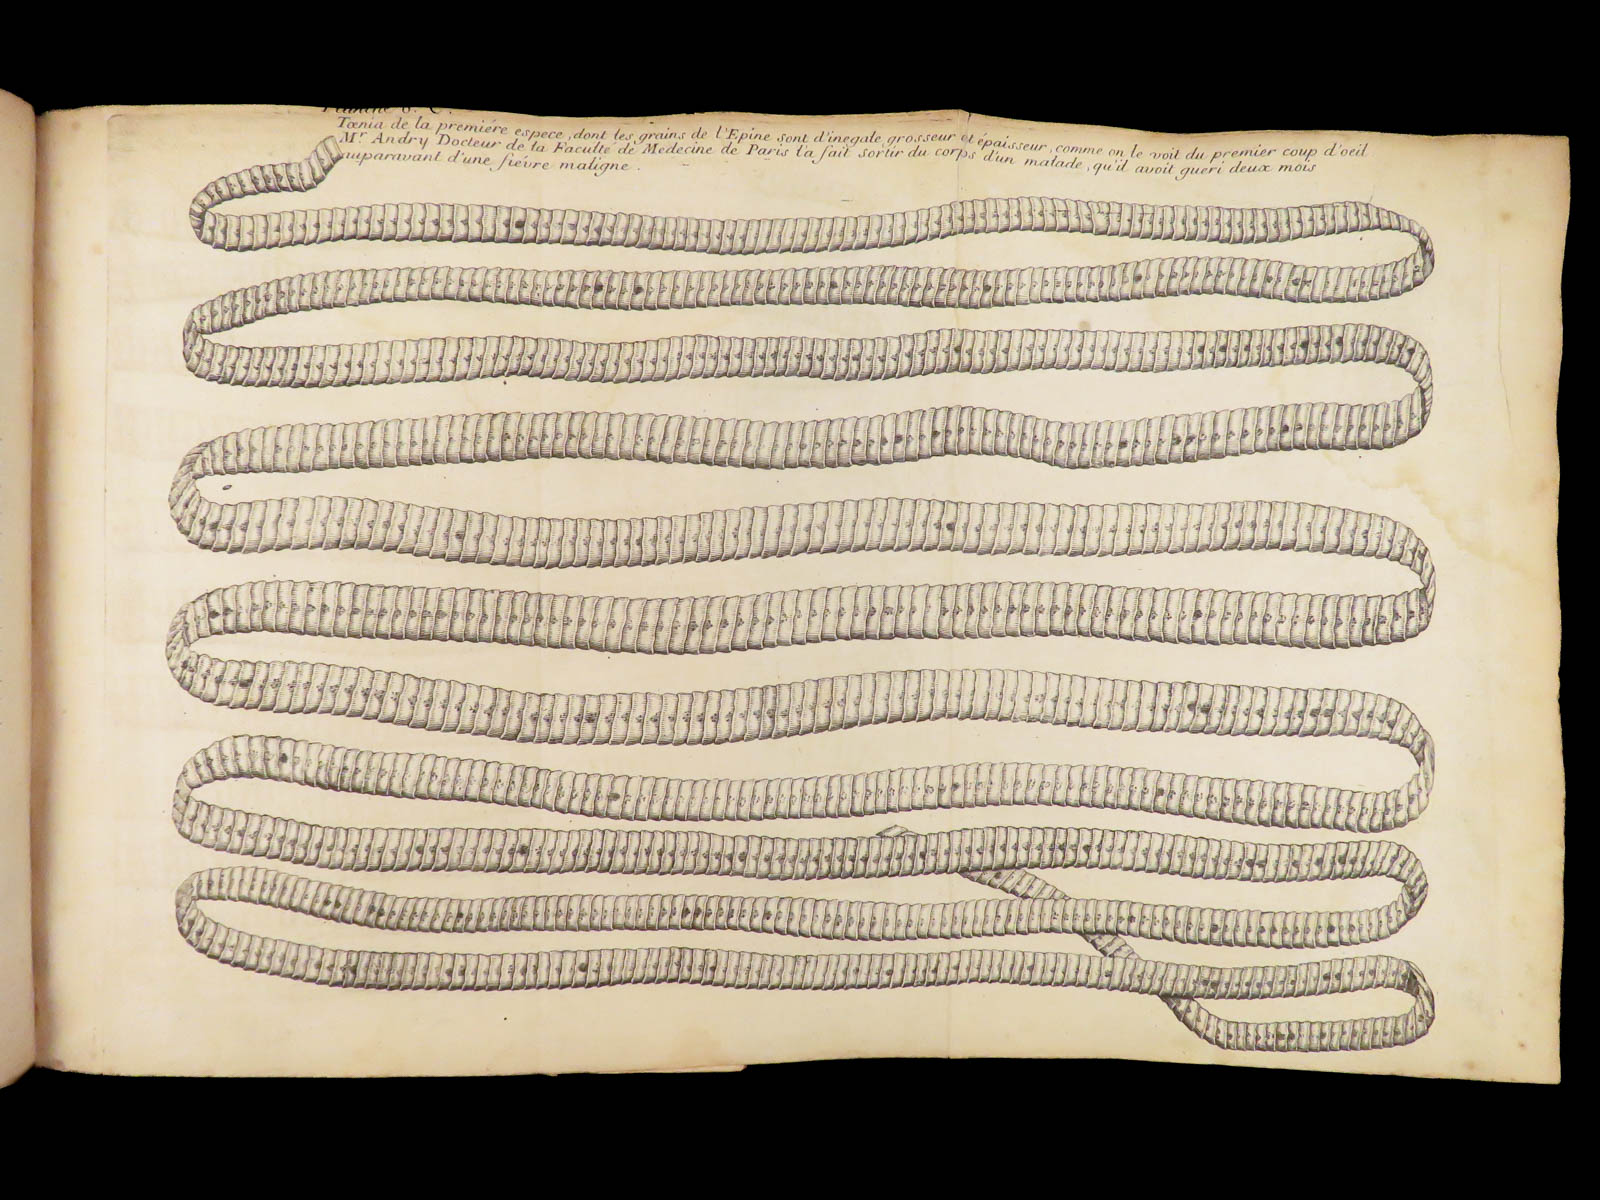 Tœnia de la premiére espece, dont les grains de l'Epine sont d'inegale grosseur et épaisseur, comme on le voit du premier coup d'oeil
Mr. Andry Docteur de la Faculté de Medecine de Paris l'a fait sortir du corps d'un malade, qu'il avoit gueri deux mois
auparavant d'une fiévre maligne.